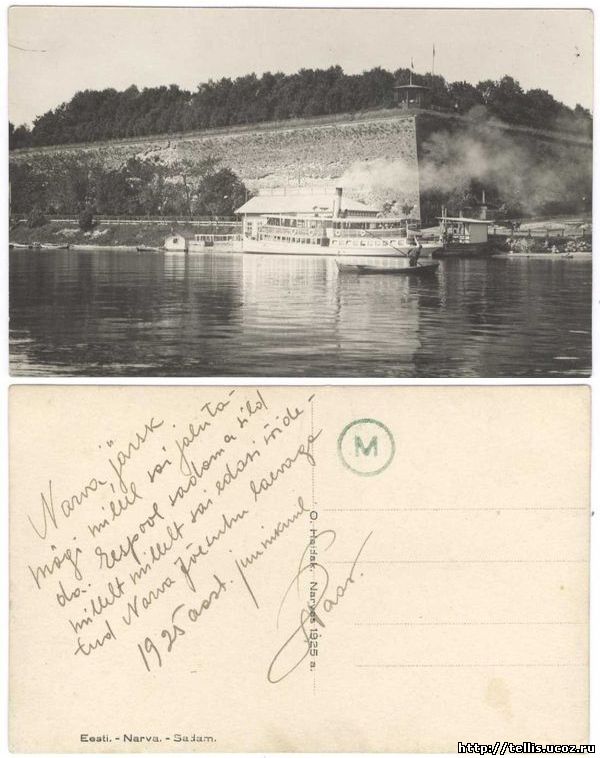 Narva, järsk
mägi millel sai jaluta-
da. Eespool sadama sild
millelt millelt sai edasi sõide-
tud Narva Jõesuhu laevaga
1925 aast. juunikuul
M
O. Haidak. Narvas 1925 a.
Eesti. - Narva. - Sadam.
http://tellis.ucoz.ru